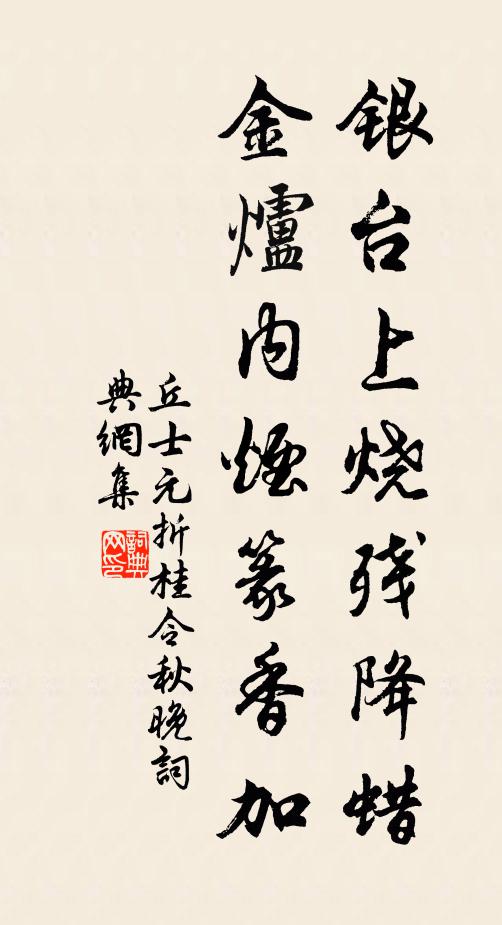 银台上烧残降蜡
金爐内煙篆香加
丘士元折桂令秋晚詞
典網集
詞典
网印